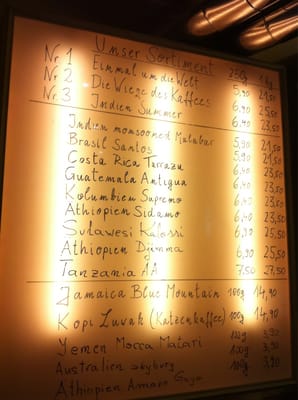 Unser Sortiment 250g 1kg
Nr. 1 Einmal um die Welt 5,90 21,50
Nr. 2 Die Wiege des Kaffees 6,90 25,50
Nr. 3 Indien Summer 6,40 23,50
Indien monsooned Malabar 5,90 21,50
Brasil Santos 5,90 21,50
Costa Rica Tarrazu 6,40 23,50
Guatemala Antigua 6,40 23,50
Kolumbien Supremo 6,40 23,50
Äthiopien Sidamo 6,40 23,50
Sulawesi Kalossi 6,90 25,50
Äthiopien Djimma 6,90 25,50
Tanzania AA 7,50 27,50
Jamaica Blue Mountain 100g 14,90
Kopi Luwak (Katzenkaffee) 100g 14,90
Yemen Mocca Matari 100g 3,90
Australien Skyburg 100g 3,90
Äthiopien Amaro Gayo 100g 3,90